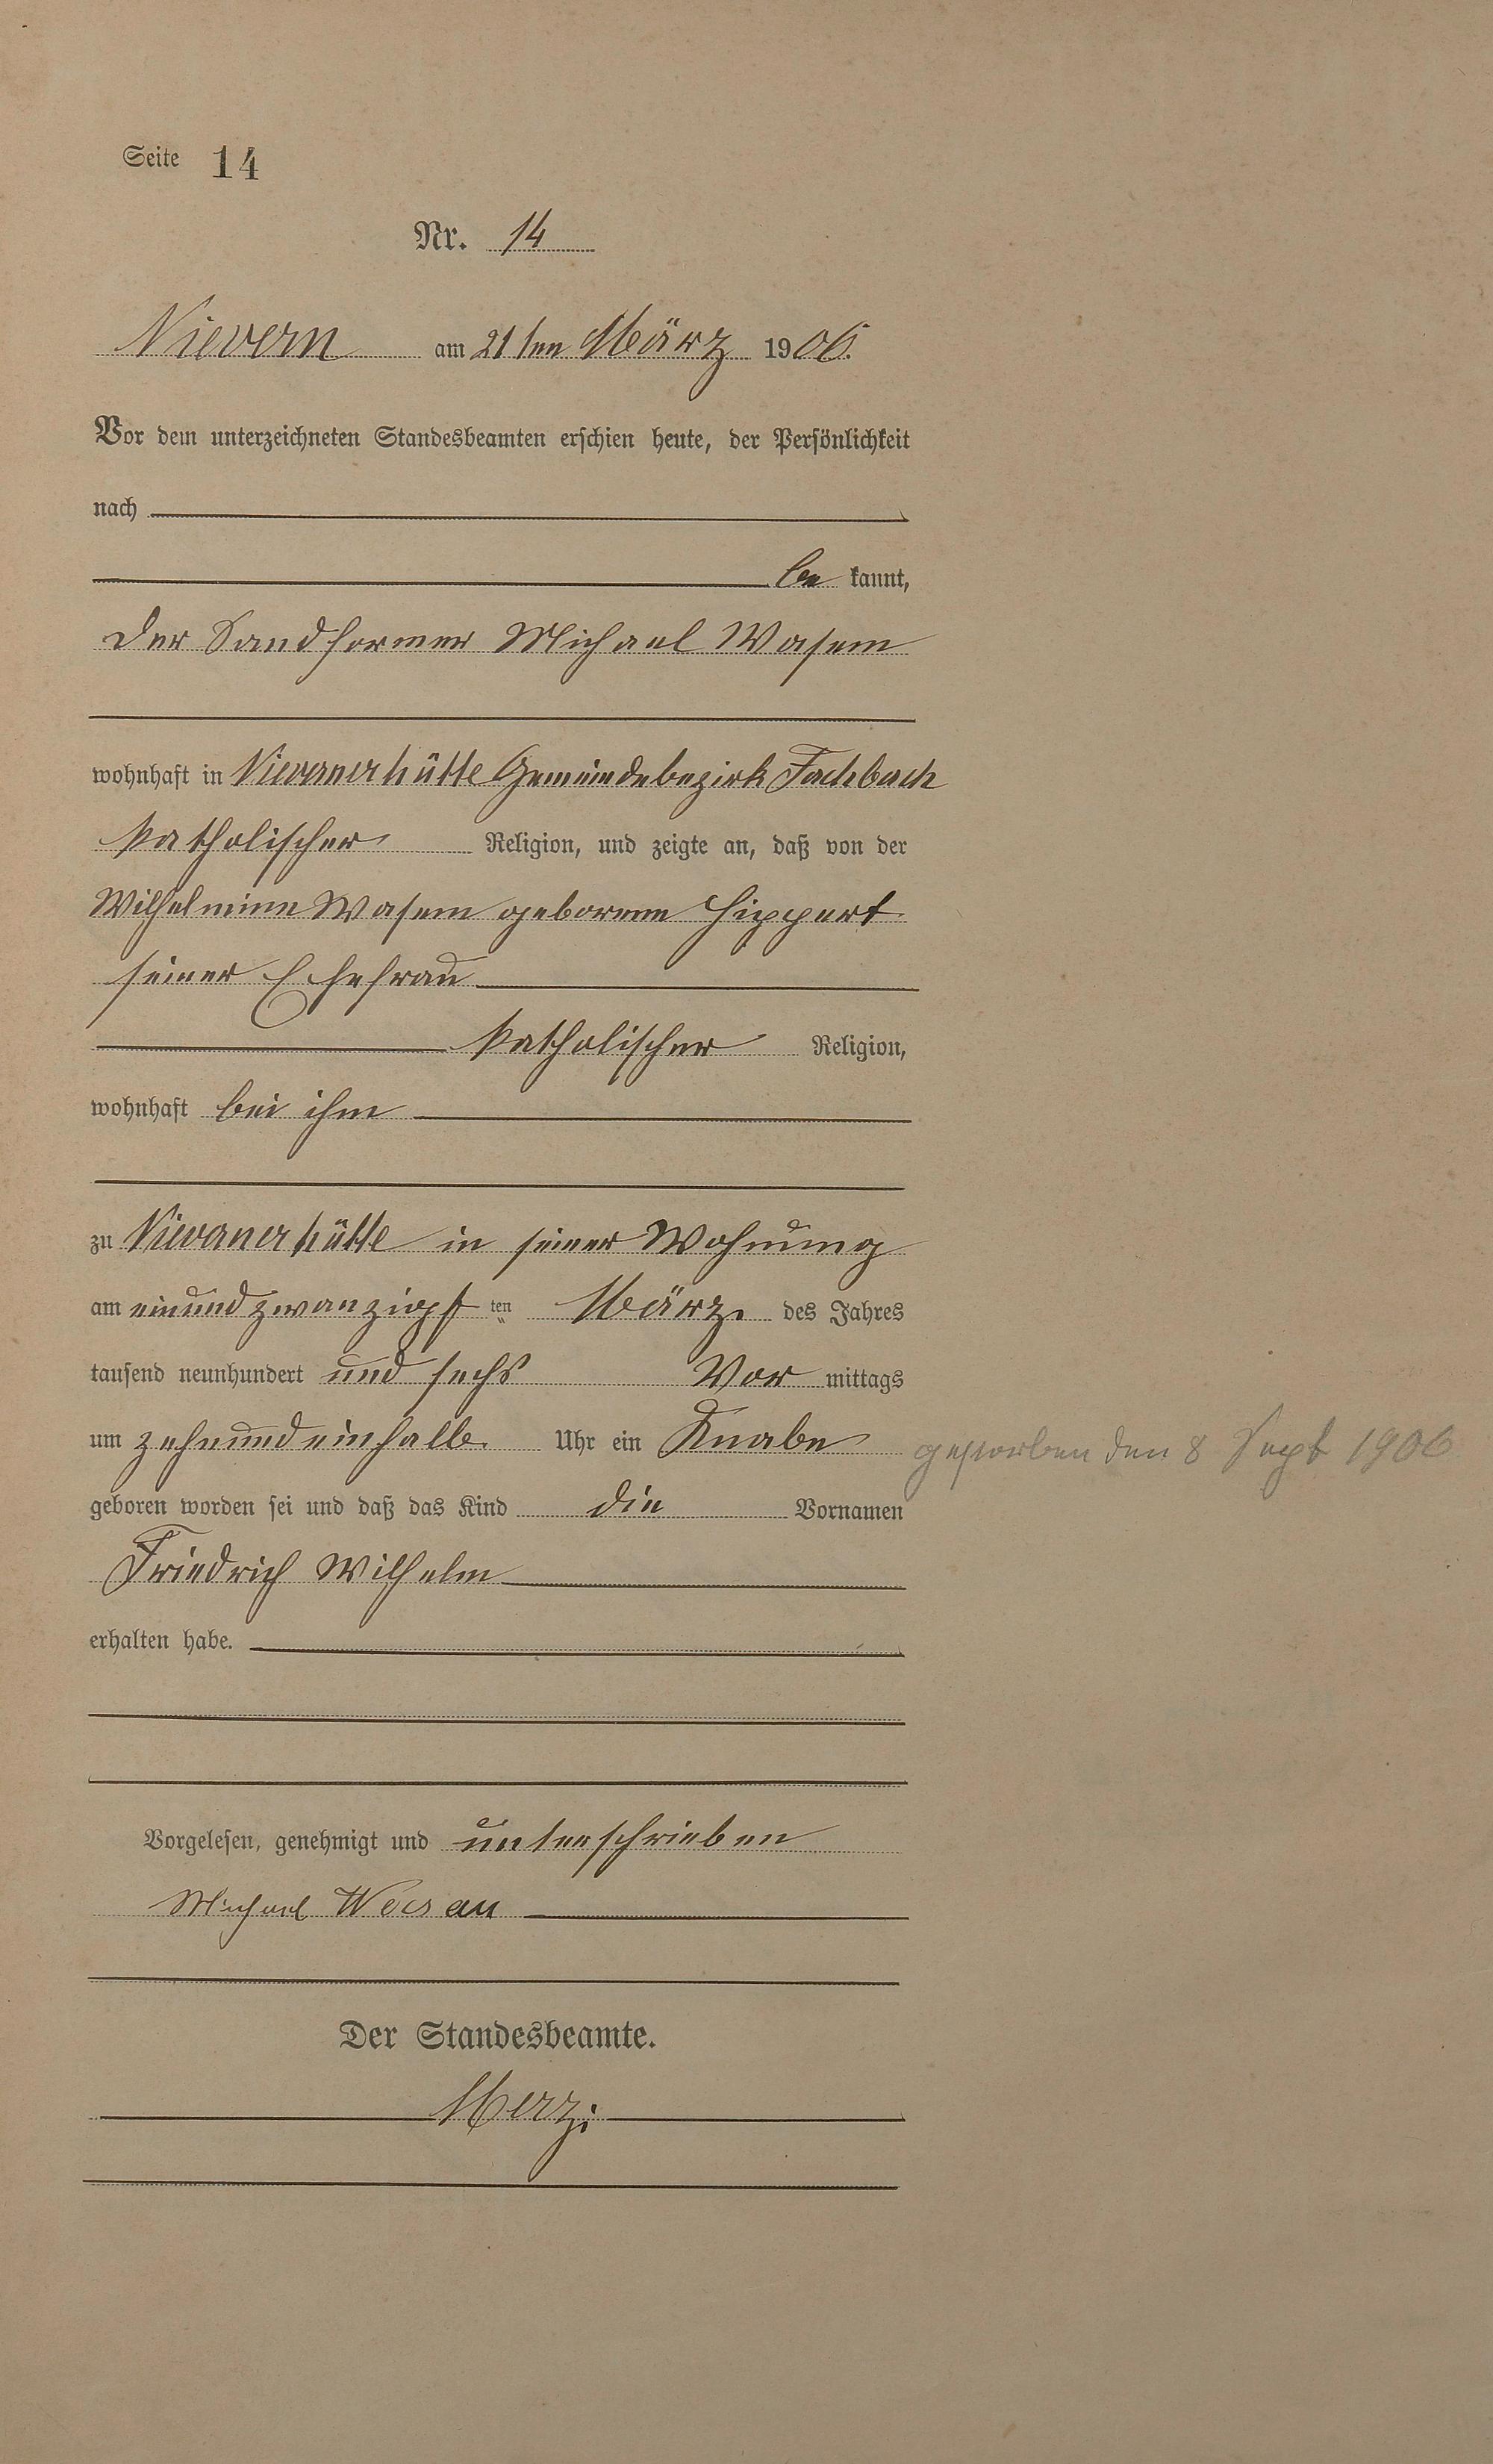 Seite 14
Nr. 14
Nievern am 21ten März 1906.
Vor dem unterzeichneten Standesbeamten erschien heute, der Persönlichkeit
nach
be kannt,
der Sandformer Michael Wasem
wohnhaft in Nievernerhütte Gemeindebezirk Fachbach
katholischer Religion, und zeigte an, daß von der
Wilhelmine Wasem geborene Hippert
seiner Ehefrau
katholischer Religion,
wohnhaft bei ihm
zu Nievernerhütte in seiner Wohnung
am einundzwanzigsten März des Jahres
tausend neunhundert und sechs Vor mittags
um zehnundeinhalb Uhr ein Knabe
gestorben den 8 Sept 1906
geboren worden sei und daß das Kind die Vornamen
Friedrich Wilhelm
erhalten habe.
Vorgelesen, genehmigt und unterschrieben
Michael
Der Standesbeamte.
Merz